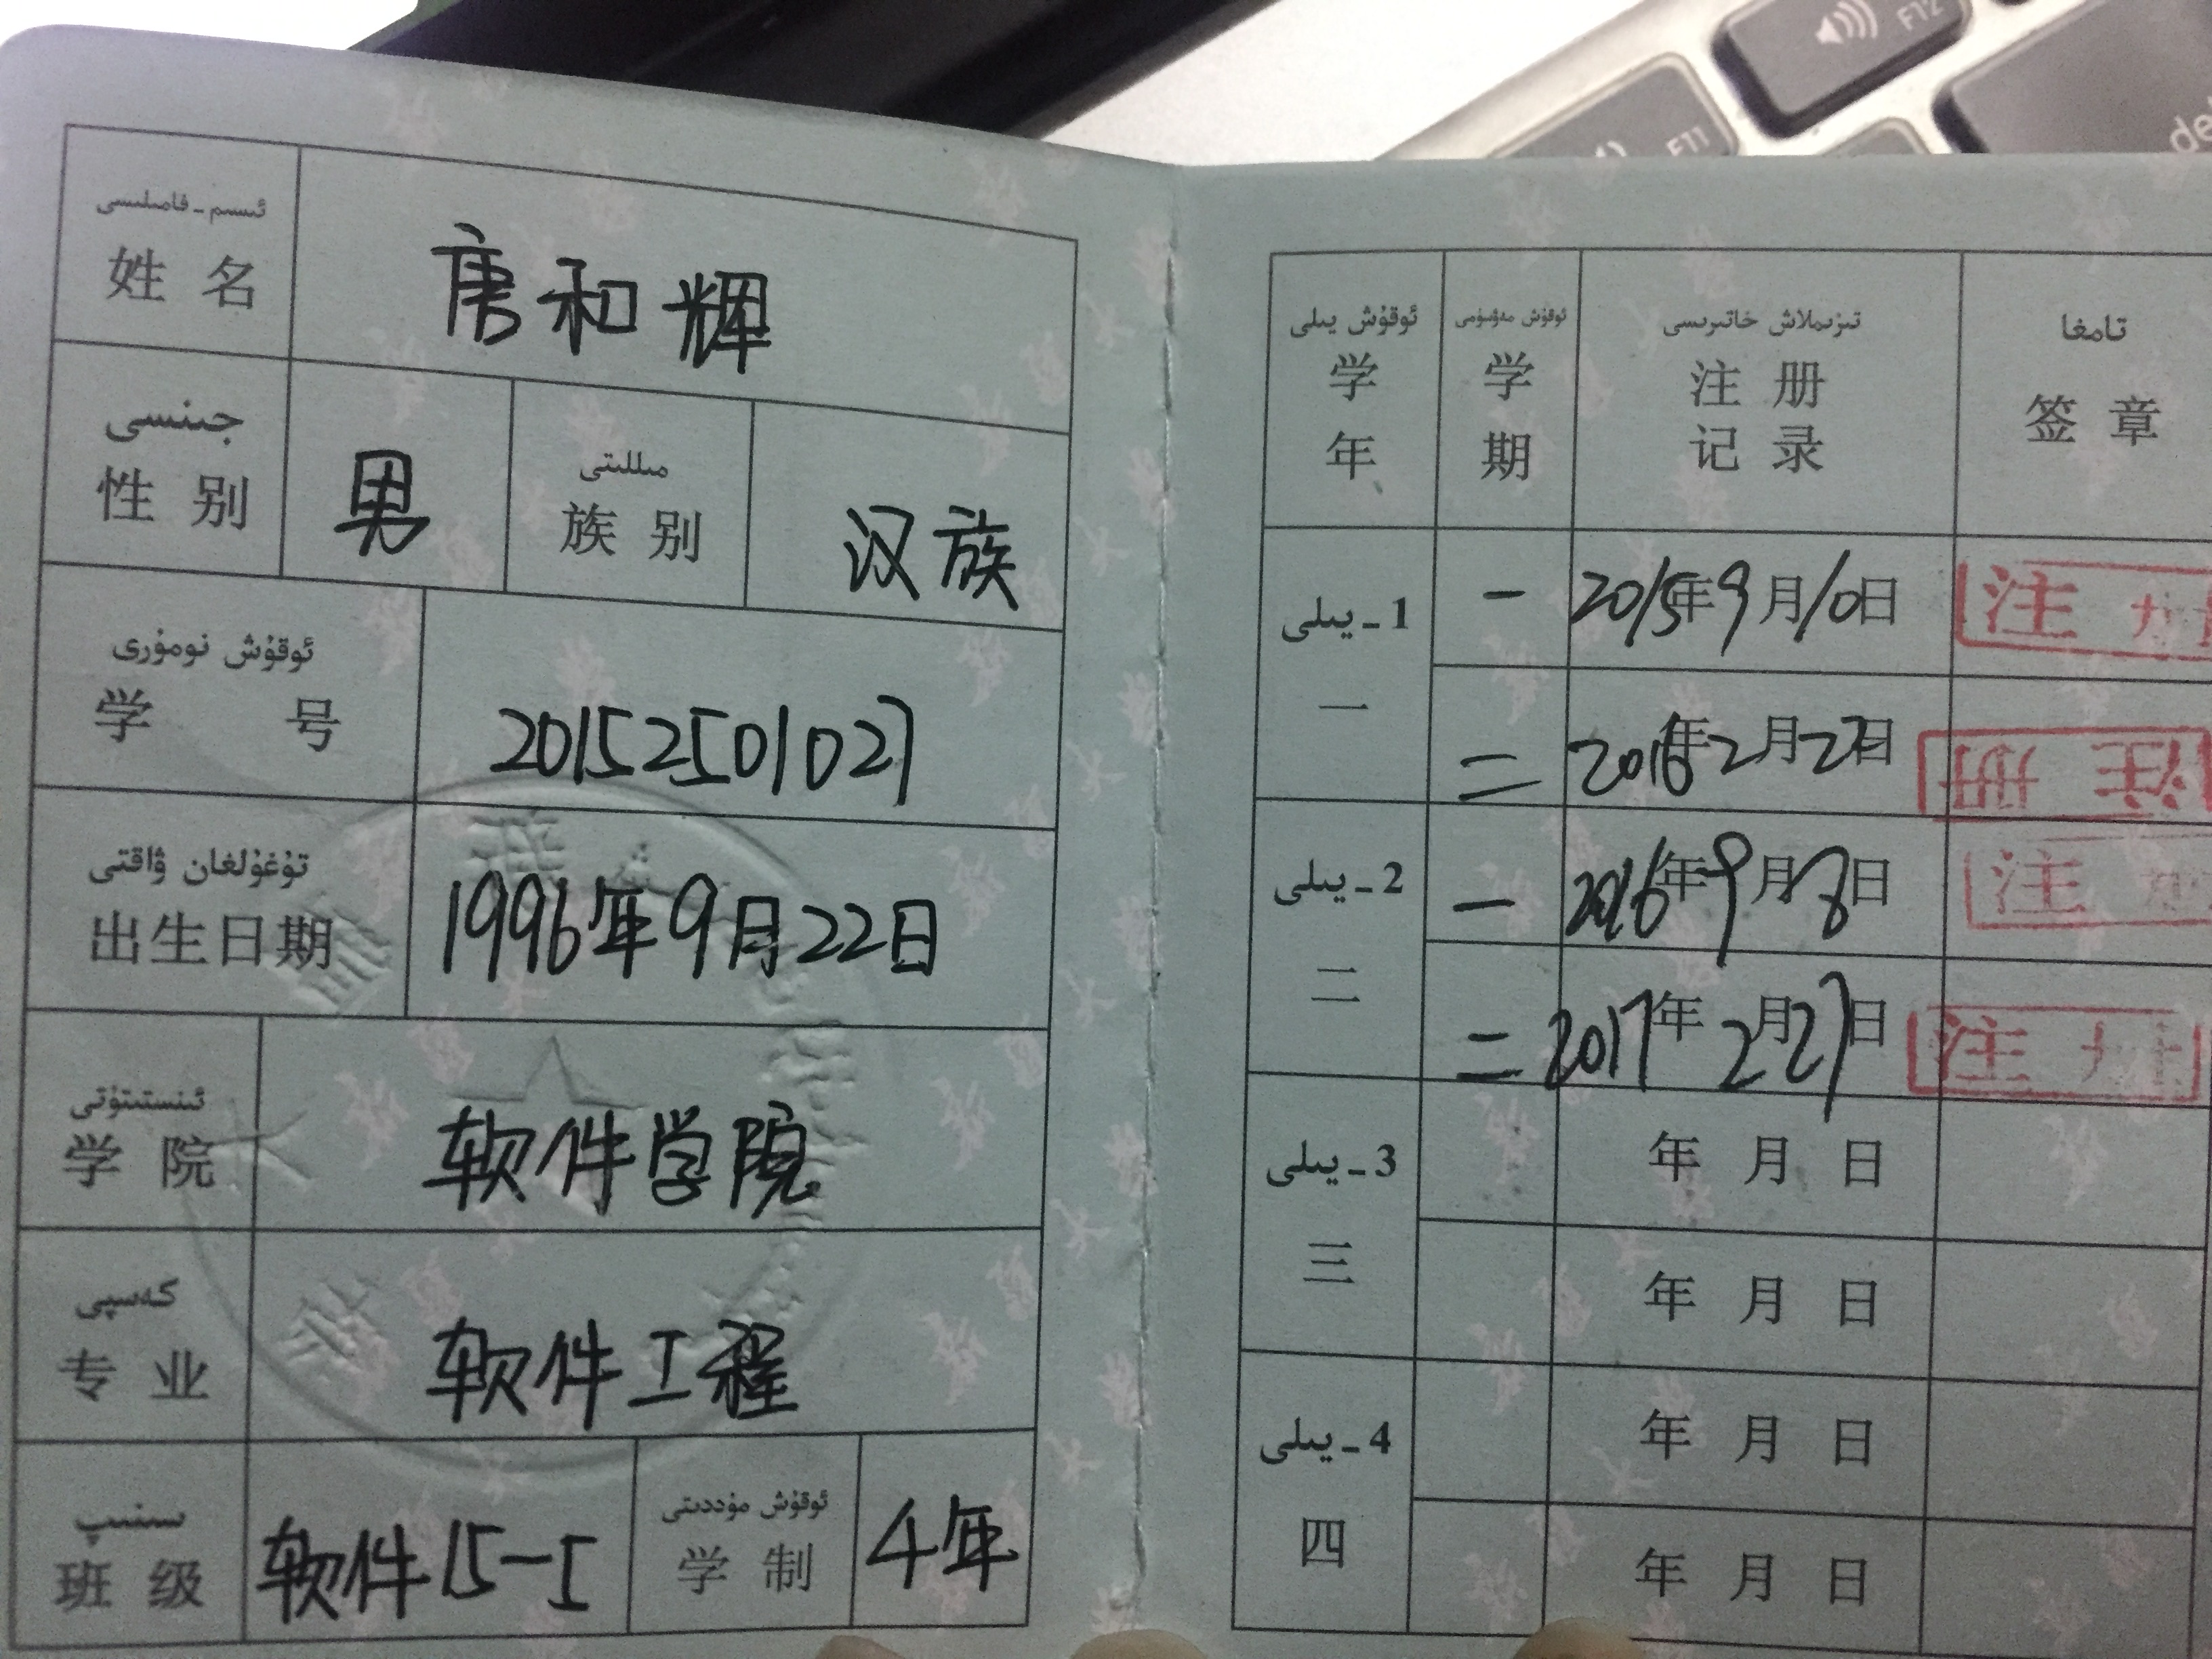 ئىسىم-فامىلىسى
姓名 唐和辉
جىنسى مىللىتى
性别 男 族别 汉族
ئوقۇش نومۇرى
学号 20152501021
تۇغۇلغان ۋاقتى
出生日期 1996年9月22日
ئىنستىتۇتى
学院 软件学院
كەسپى
专业 软件工程
سىنىپ ئوقۇش مۇددىتى
班级 软件15-1 学制 4年
ئوقۇش يىلى ئوقۇش مەۋسۇمى تىزىملاش خاتىرىسى تامغا
学年 学期 注册记录 签章
1-يىلى
一 一 2015年9月10日 注
二 2016年2月22日 注册
2-يىلى
二 一 2016年9月2日 注
二 2017年2月27日 注
3-يىلى
三 年 月 日
年 月 日
4-يىلى
四 年 月 日
年 月 日
F11
F12
del